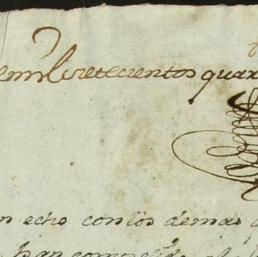 emill setecientos quar
n echo con los demas
han